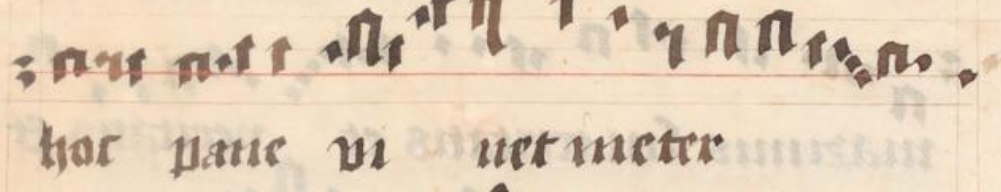 hoc pane vi uet meter